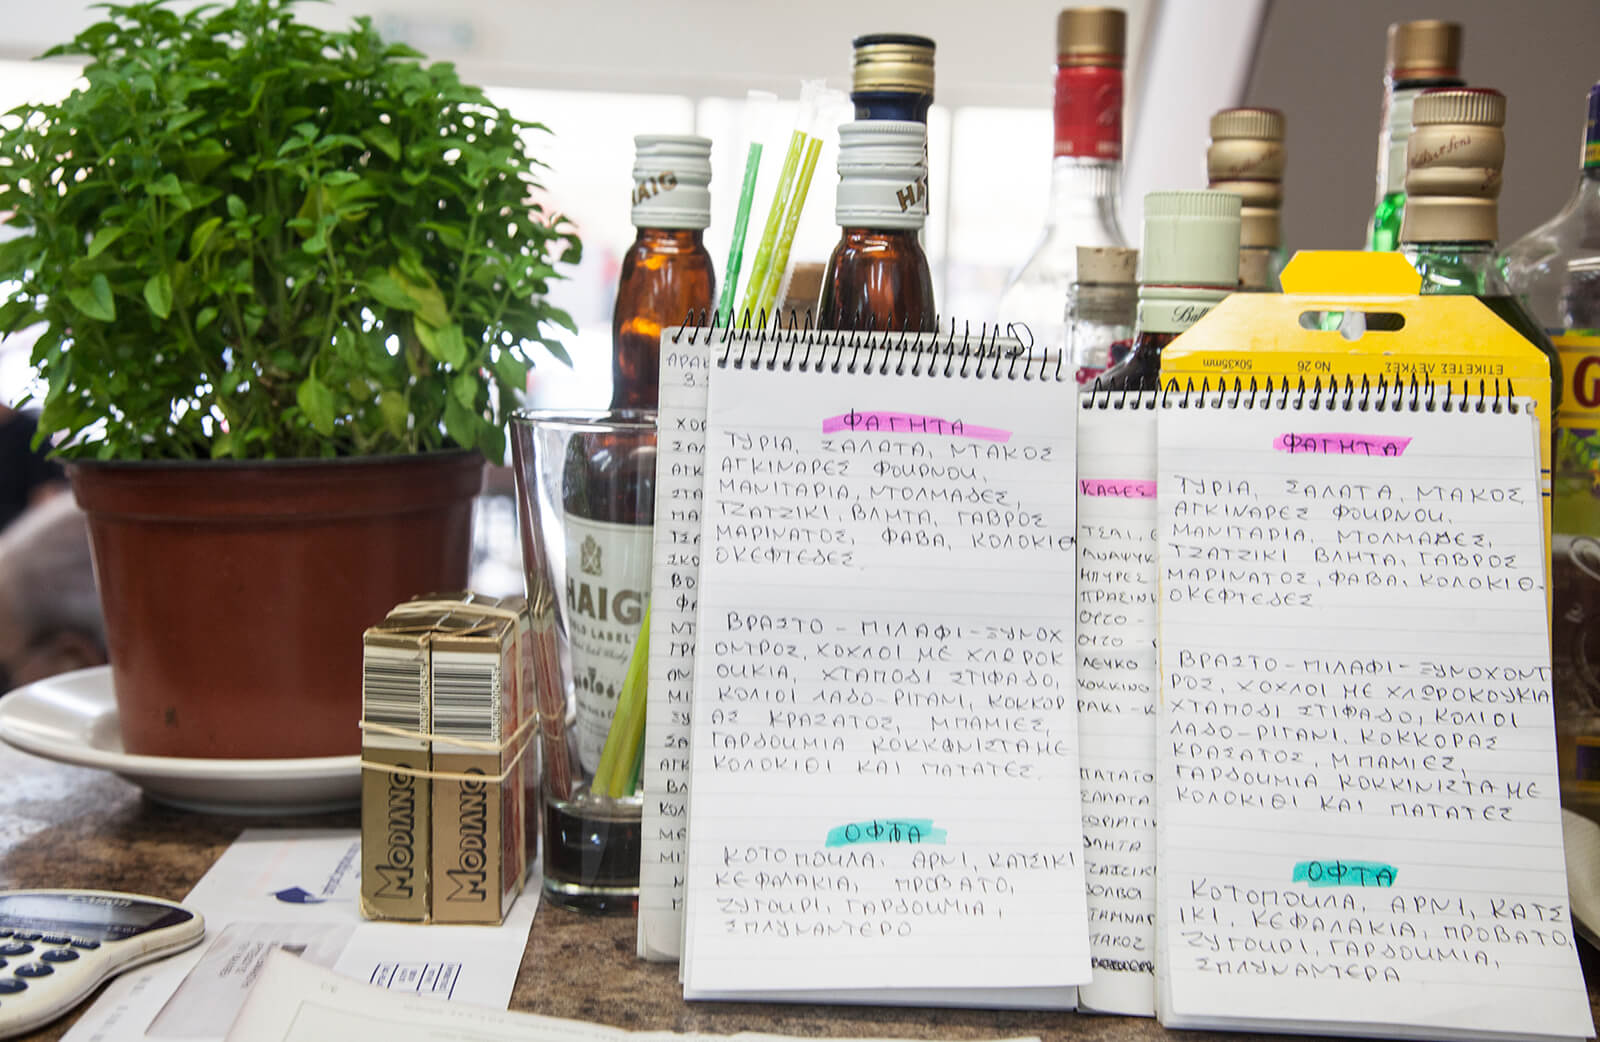 HAIG
HAIG
HAIG
GOLD LABEL
MODIANO
MODIANO
ΕΤΙΚΕΤΕΣ ΛΕΥΚΕΣ No 26 50x35mm
ΦΑΓΗΤΑ
ΤΥΡΙΑ, ΣΑΛΑΤΑ, ΝΤΑΚΟΣ
ΑΓΚΙΝΑΡΕΣ ΦΟΥΡΝΟΥ,
ΜΑΝΙΤΑΡΙΑ, ΝΤΟΛΜΑΔΕΣ,
ΤΖΑΤΖΙΚΙ, ΒΛΗΤΑ, ΓΑΒΡΟΣ
ΜΑΡΙΝΑΤΟΣ, ΦΑΒΑ, ΚΟΛΟΚΙΘ
ΟΚΕΦΤΕΔΕΣ.
ΒΡΑΣΤΟ - ΠΙΛΑΦΙ - ΞΥΝΟΧ
ΟΝΤΡΟΣ, ΧΟΧΛΟΙ ΜΕ ΧΛΩΡΟΚ
ΟΥΚΙΑ, ΧΤΑΠΟΔΙ ΣΤΙΦΑΔΟ,
ΚΟΛΙΟΙ ΛΑΔΟ-ΡΙΓΑΝΙ, ΚΟΚΚΟΡ
ΑΣ ΚΡΑΣΑΤΟΣ, ΜΠΑΜΙΕΣ,
ΓΑΡΔΟΥΜΙΑ ΚΟΚΚΙΝΙΣΤΑ ΜΕ
ΚΟΛΟΚΙΘΙ ΚΑΙ ΠΑΤΑΤΕΣ.
ΟΦΤΑ
ΚΟΤΟΠΟΥΛΑ, ΑΡΝΙ, ΚΑΤΣΙΚΙ
ΚΕΦΑΛΑΚΙΑ, ΠΡΟΒΑΤΟ,
ΖΥΓΟΥΡΙ, ΓΑΡΔΟΥΜΙΑ,
ΣΠΛΥΝΑΝΤΕΡΟ
ΚΑΦΕΣ
ΠΡΑΣΙΝ
ΟΥΖΟ -
ΟΥΖΟ -
ΛΕΥΚΟ -
ΚΟΚΚΙΝΟ
ΡΑΚΙ - Κ
ΦΑΓΗΤΑ
ΤΥΡΙΑ, ΣΑΛΑΤΑ, ΝΤΑΚΟΣ
ΑΓΚΙΝΑΡΕΣ ΦΟΥΡΝΟΥ,
ΜΑΝΙΤΑΡΙΑ, ΝΤΟΛΜΑΔΕΣ,
ΤΖΑΤΖΙΚΙ ΒΛΗΤΑ, ΓΑΒΡΟΣ
ΜΑΡΙΝΑΤΟΣ, ΦΑΒΑ, ΚΟΛΟΚΙΘ-
ΟΚΕΦΤΕΔΕΣ
ΒΡΑΣΤΟ - ΠΙΛΑΦΙ - ΞΥΝΟΧΟΝΤ
ΡΟΣ, ΧΟΧΛΟΙ ΜΕ ΧΛΩΡΟΚΟΥΚΙΑ
ΧΤΑΠΟΔΙ ΣΤΙΦΑΔΟ, ΚΟΛΙΟΙ
ΛΑΔΟ-ΡΙΓΑΝΙ, ΚΟΚΚΟΡΑΣ
ΚΡΑΣΑΤΟΣ, ΜΠΑΜΙΕΣ,
ΓΑΡΔΟΥΜΙΑ ΚΟΚΚΙΝΙΣΤΑ ΜΕ
ΚΟΛΟΚΙΘΙ ΚΑΙ ΠΑΤΑΤΕΣ
ΟΦΤΑ
ΚΟΤΟΠΟΥΛΑ, ΑΡΝΙ, ΚΑΤΣ
ΙΚΙ, ΚΕΦΑΛΑΚΙΑ, ΠΡΟΒΑΤΟ,
ΖΥΓΟΥΡΙ, ΓΑΡΔΟΥΜΙΑ,
ΣΠΛΥΝΑΝΤΕΡΑ